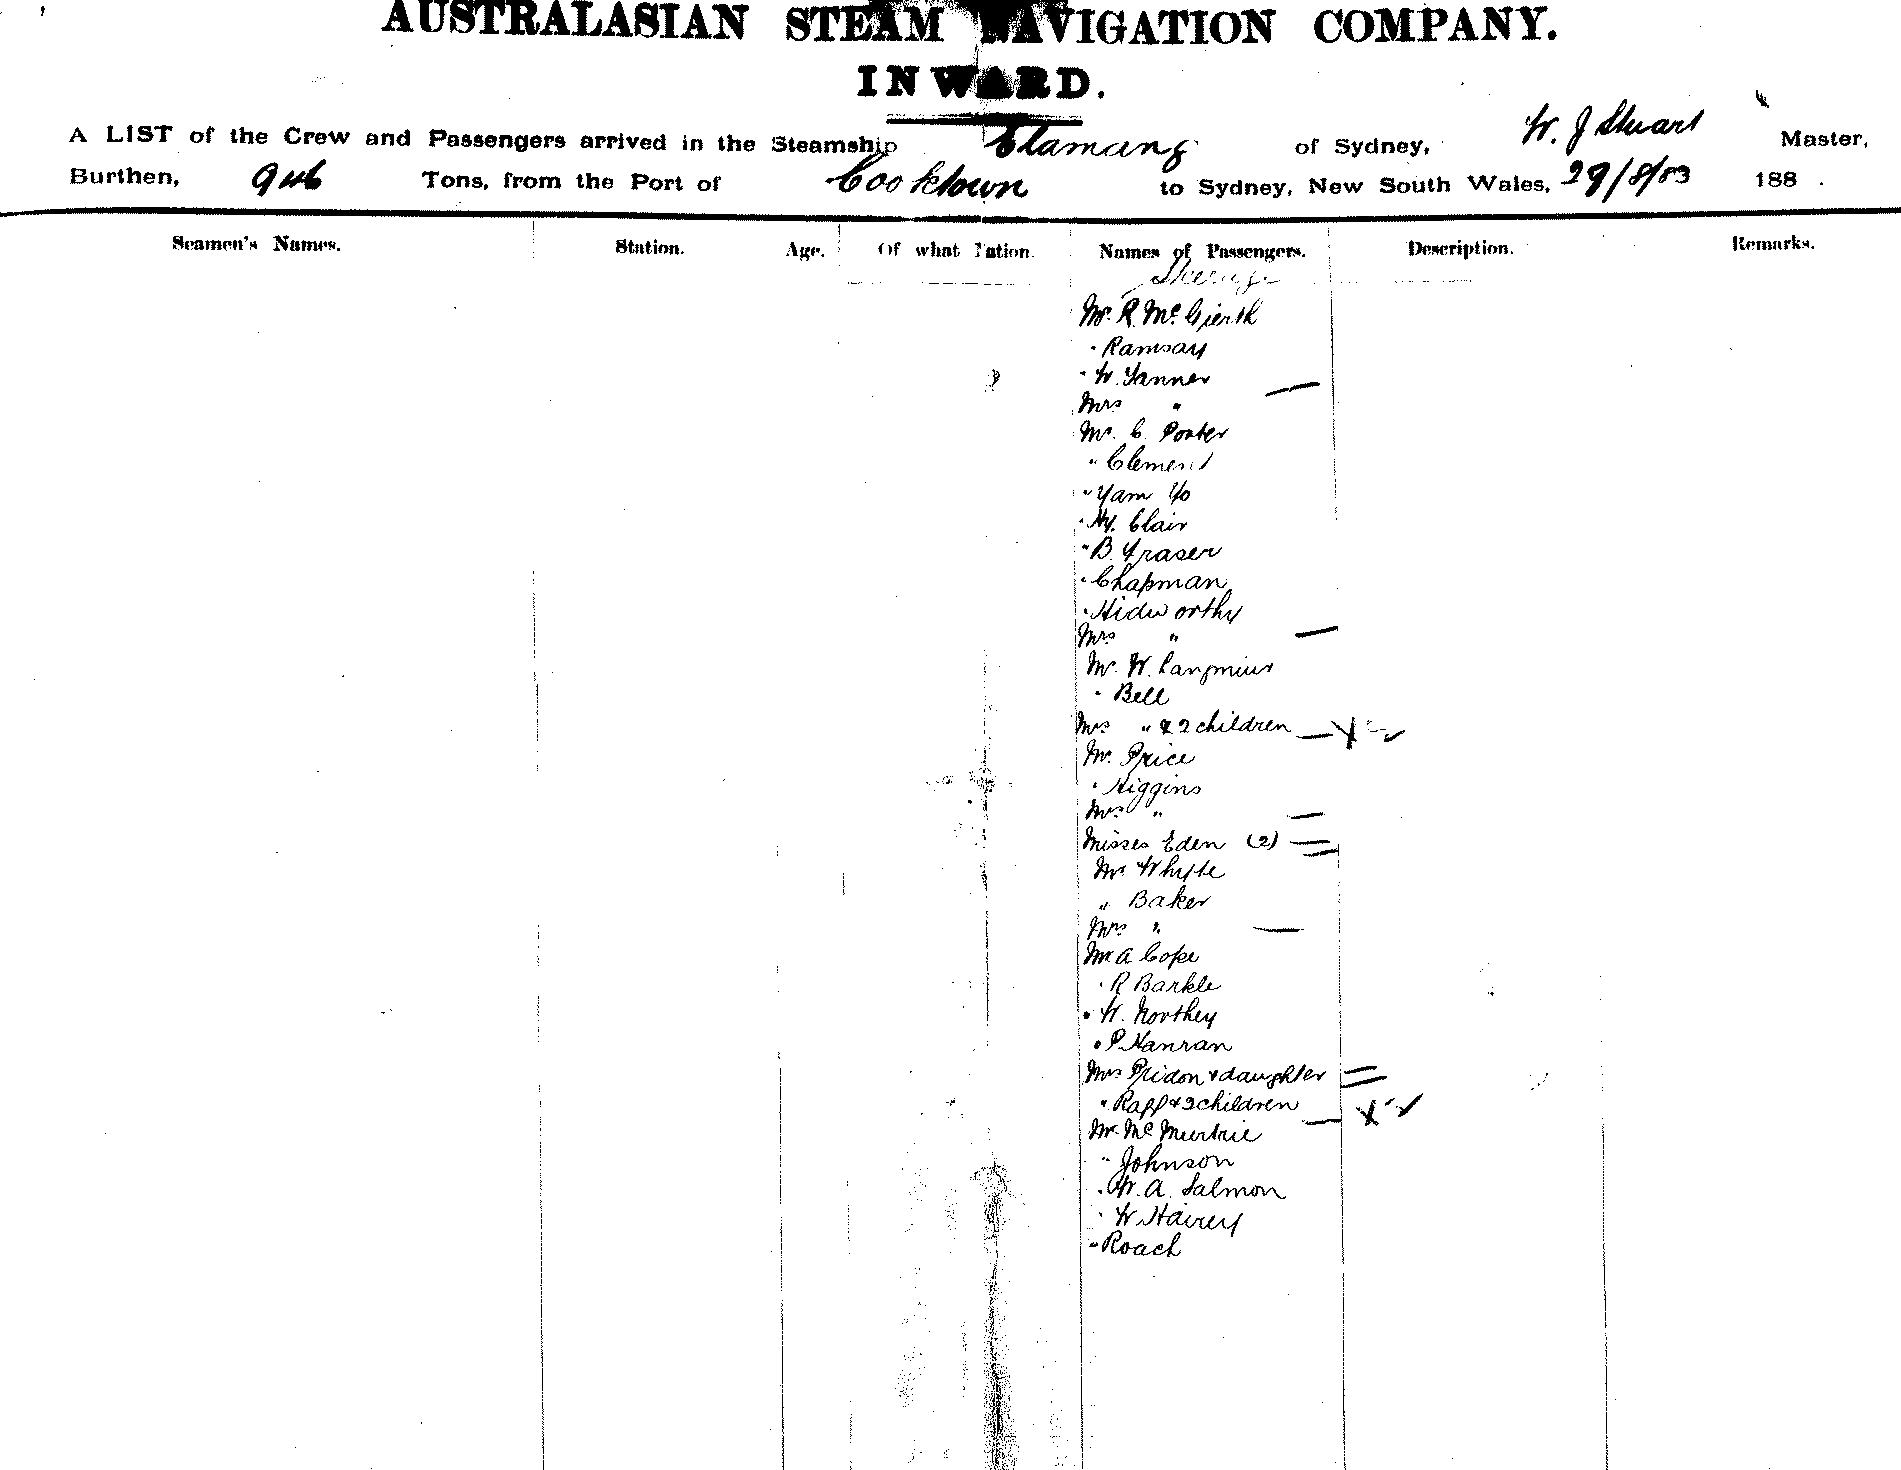 AUSTRALASIAN STEAM NAVIGATION COMPANY.
INWARD.
A LIST of the Crew and Passengers arrived in the Steamship Elamang of Sydney, W. J Stuart Master,
Burthen, 946 Tons, from the Port of Cooktown to Sydney, New South Wales, 29/8/83 188 .
Seamen's Names. Station. Age. Of what Nation. Names of Passengers. Description. Remarks.
Steerage
Mr. R. Mc
" Ramsay
" W. Tanner
Mrs "
Mr. C. Porter
" Clement
" Yam Yo
" Hy. Clair
" B. Fraser
" Chapman
" Hidworthy
Mrs "
Mr. W. Langmuir
" Bell
Mrs " & 2 children
Mr. Price
" Higgins
Mrs "
Misses Eden (2)
Mr Whyte
" Baker
Mrs "
Mr A Cope
" R Barkle
" W. Northey
" P Hanran
Mrs Pridon & daughter
" Rapp & 2 children
Mr Mc Murtrie
" Johnson
" W. A. Salmon
" W
" Roach